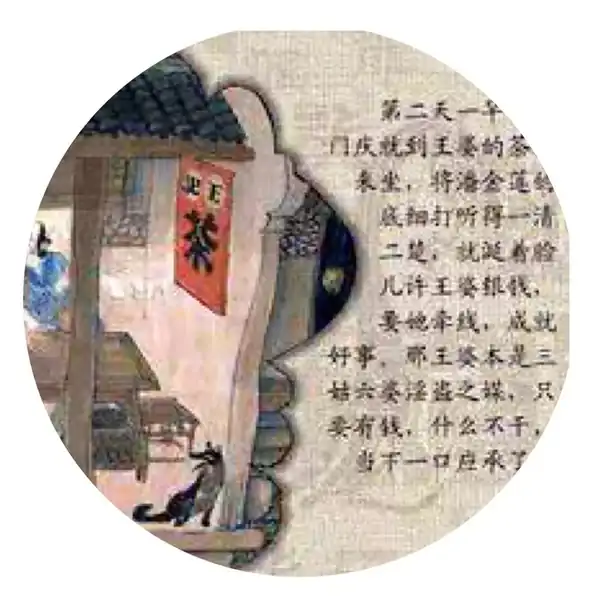 王记
茶
第二天一早
门庆就到王婆的茶
来坐，将潘金莲的
底细打听得一清
二楚，就涎着脸
儿许王婆银钱，
要她牵线，成就
好事，那王婆本是三
姑六婆淫盗之媒，只
要有钱，什么不干，
当下一口应承了